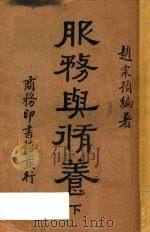 趙宗預編著
服務與修養
下
商務印書館發行